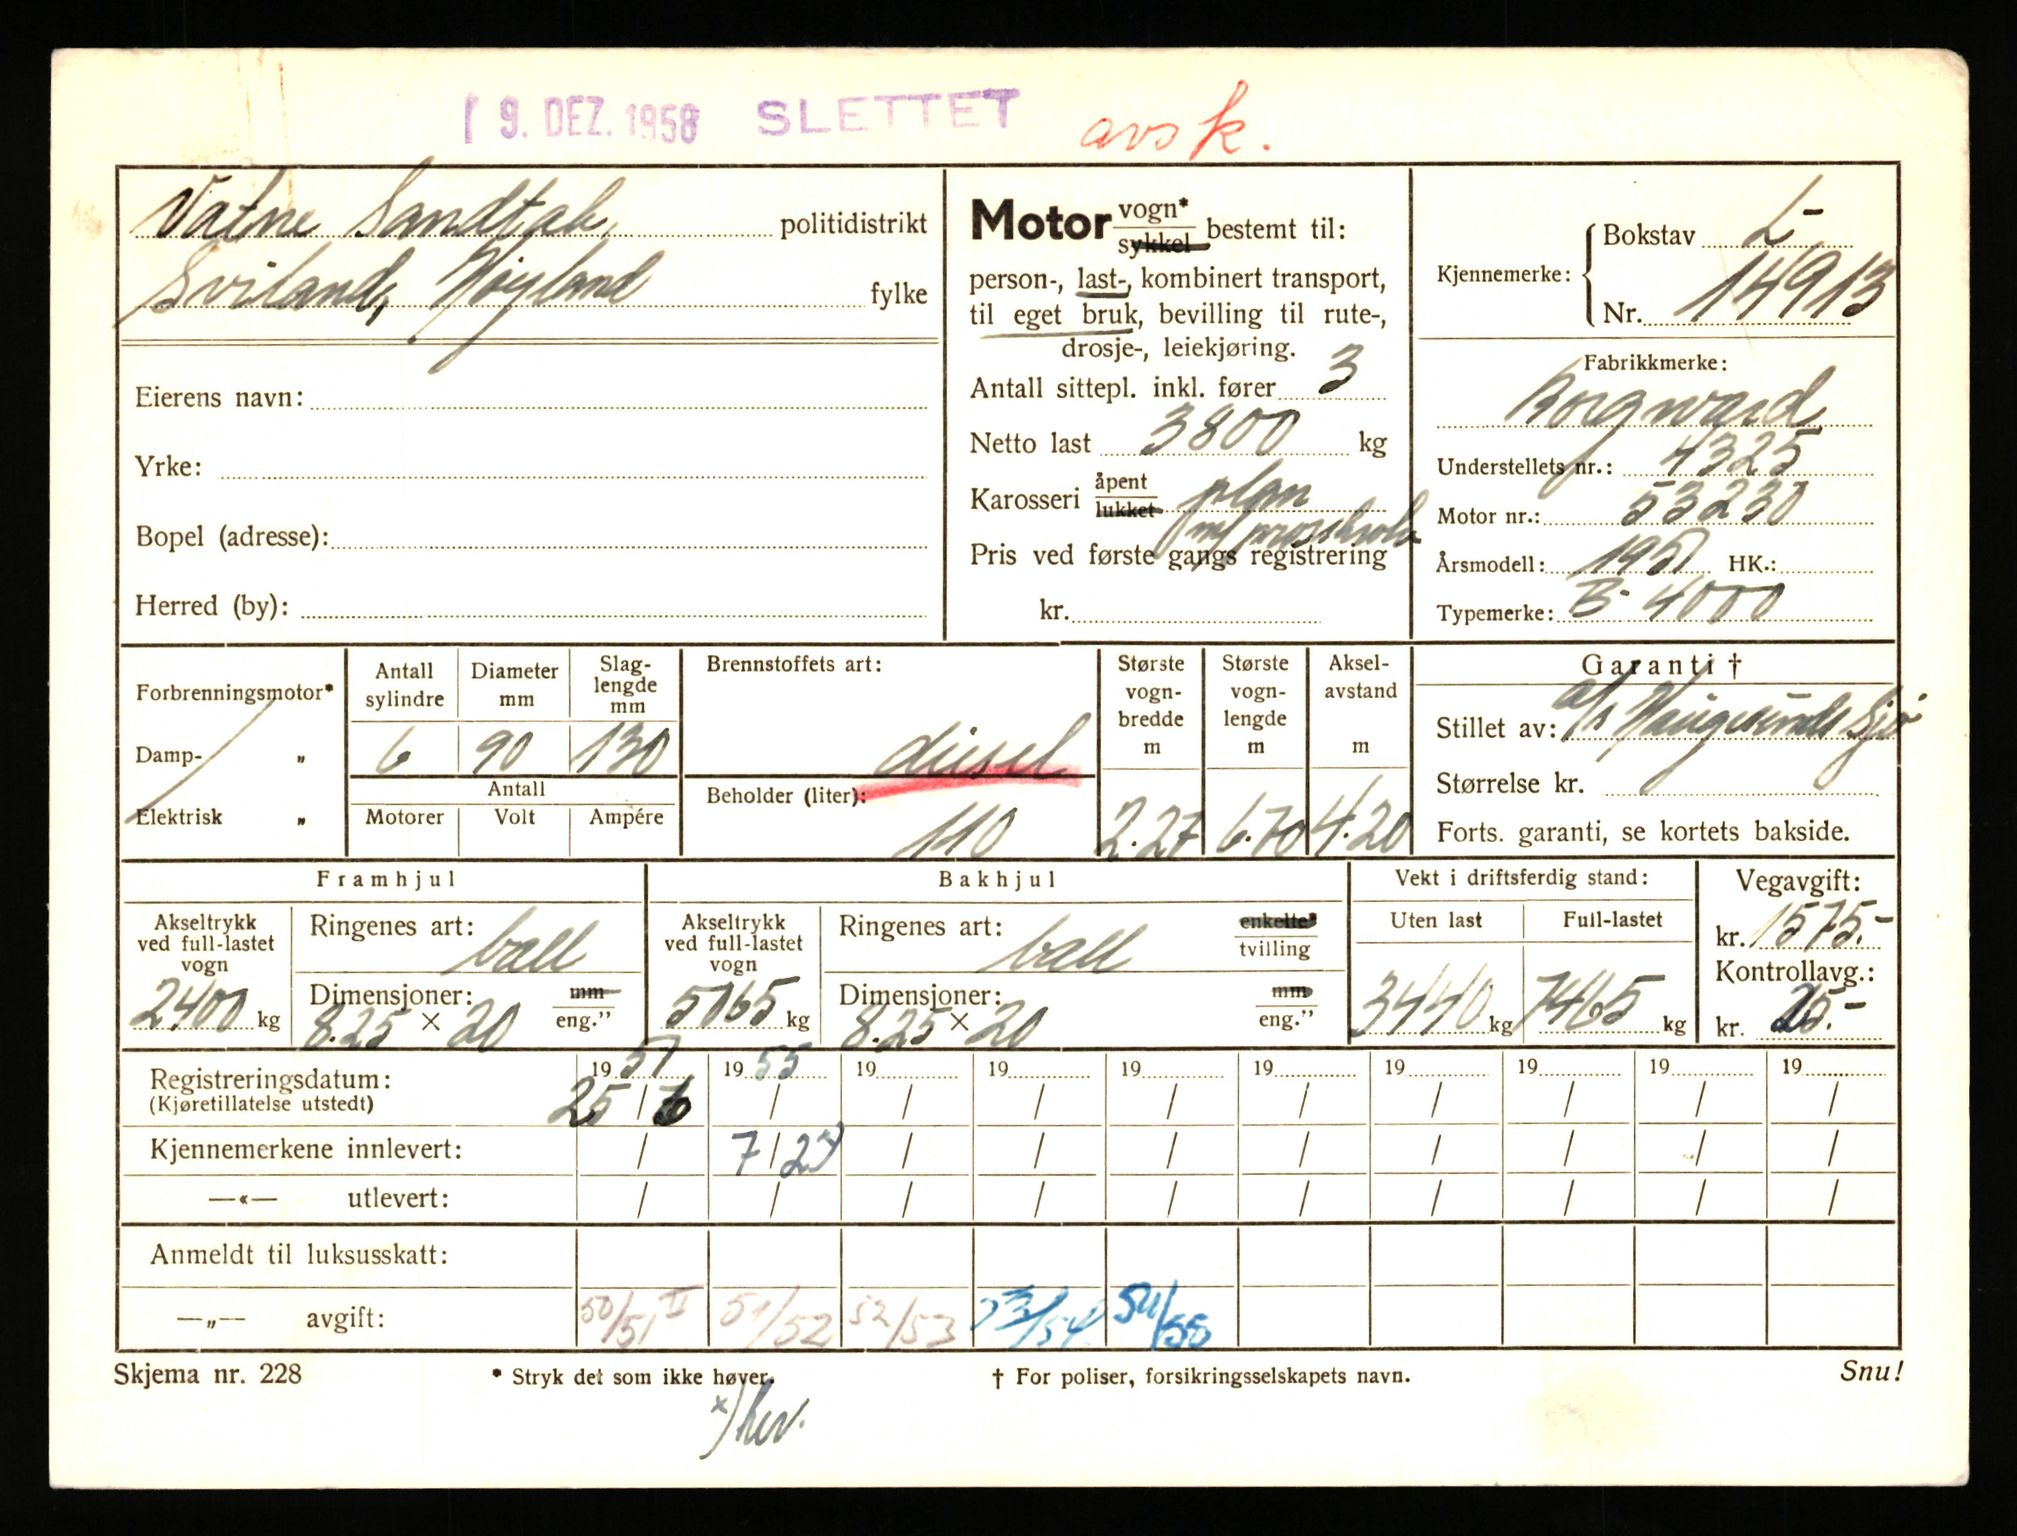 19. DEZ. 1958 SLETTET avsk.
Vatne Sandtak politidistrikt
Sviland, Høyland fylke
Eierens navn:
Yrke:
Bopel (adresse):
Herred (by):
Motor vogn* sykkel bestemt til:
person-, last-, kombinert transport,
til eget bruk, bevilling til rute-,
drosje-, leiekjøring.
Antall sittepl. inkl. fører 3
Netto last 3800 kg
Karosseri åpent lukket plan
Pris ved første gangs registrering
kr.
Kjennemerke: Bokstav L-
Nr. 14913
Fabrikkmerke:
Borgward
Understellets nr.: 4325
Motor nr.: 53230
Årsmodell: 1951 HK.:
Typemerke: B-4000
Forbrenningsmotor*
Damp- „
Elektrisk „
Antall sylindre Diameter mm Slaglengde mm
6 90 130
Antall
Motorer Volt Ampére
Brennstoffets art:
diesel
Beholder (liter):
110
Største vognbredde m
2.27
Største vognlengde m
6.70
Akselavstand m
4.20
Garanti †
Stillet av: a/s Haugesunds Sjø
Størrelse kr.
Forts. garanti, se kortets bakside.
Framhjul
Akseltrykk ved full-lastet vogn
2400 kg
Ringenes art: ball
Dimensjoner: mm
8.25 × 20 eng.”
Bakhjul
Akseltrykk ved full-lastet vogn
5065 kg
Ringenes art: ball enkelte* tvilling
Dimensjoner: mm
8.25 × 20 eng.”
Vekt i driftsferdig stand:
Uten last Full-lastet
3440 kg 7465 kg
Vegavgift:
kr. 1575.-
Kontrollavg.:
kr. 25.-
Registreringsdatum: 19 51 19 55 19 19 19 19 19 19 19 19
(Kjøretillatelse utstedt) 25 / 6 / / / / / / / / /
Kjennemerkene innlevert: / 7 / 23 / / / / / / / /
—«— utlevert: / / / / / / / / / /
Anmeldt til luksusskatt:
—„— avgift: 50/51 II 51/52 52/53 53/54 54/55
Skjema nr. 228 * Stryk det som ikke høver. † For poliser, forsikringsselskapets navn. Snu!